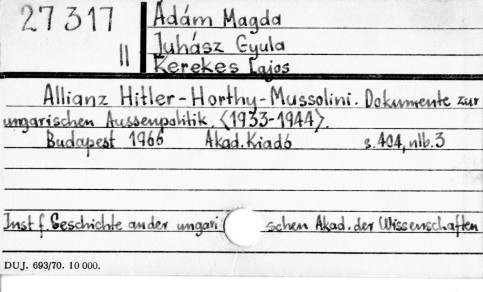 27317
II
Ádám Magda
Juhász Gyula
Kerekes Lajos
Allianz Hitler-Horthy-Mussolini. Dokumente zur
ungarischen Aussenpolitik. <1933-1944>.
Budapest 1966 Akad. Kiadó s. 404, nlb. 3
Inst f. Geschichte an der ungari schen Akad. der Wissenschaften
DUJ. 693/70. 10 000.